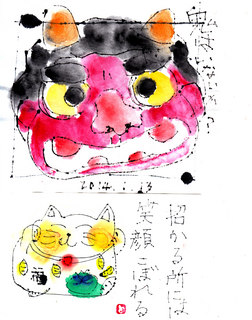 2014.1.23
招かる所には
笑顔こぼれる
福